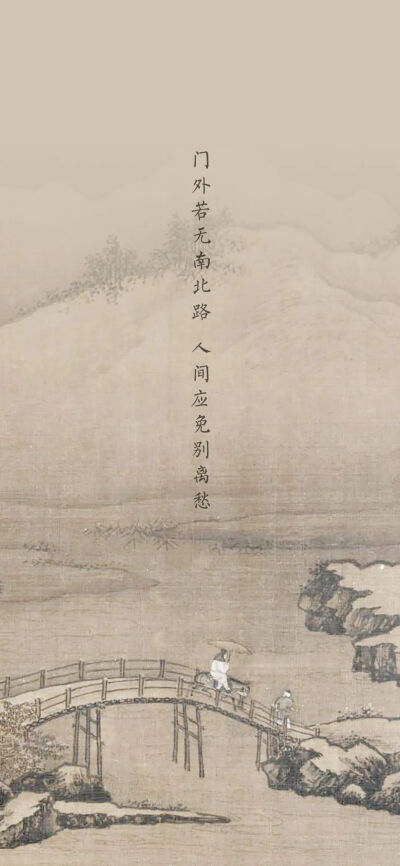 门外若无南北路 人间应免别离愁